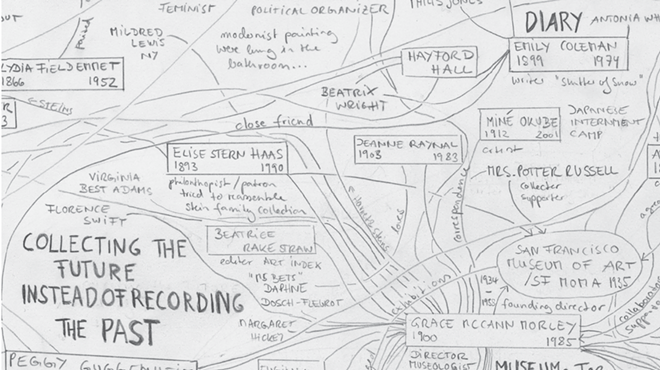 FEMINIST
POLITICAL ORGANIZER
PHILIS JONES
DIARY
MILDRED
LEWIS
NY
modernist painting
were hung in the
bathroom...
HAYFORD
HALL
EMILY COLEMAN
1899 1974
writer "shutter of snow"
LYDIA FIELD EMMET
1866 1952
STEINS
BEATRIX
WRIGHT
close friend
MINÉ OKUBO
1912 2001
artist
JAPANESE
INTERNMENT
CAMP
ELISE STERN HAAS
1893 1990
philanthropist / patron
tried to reassemble
stein family collection
JEANNE RAYNAL
1903 1983
MRS. POTTER RUSSELL
collector
supporter
VIRGINIA
BEST ADAMS
FLORENCE
SWIFT
correspondence
COLLECTING THE
FUTURE
INSTEAD OF RECORDING
THE PAST
BEATRICE
RAKESTRAW
editor ART INDEX
"MS BETS"
DAPHNE
DOSCH-FLEUROT
MARGARET
SAN FRANCISCO
MUSEUM OF ART
/SF MOMA 1935
1934
founding director
GRACE MCCANN MORLEY
1900 1985
DIRECTOR
MUSEOLOGIST
PEGGY GUGGENHEIM